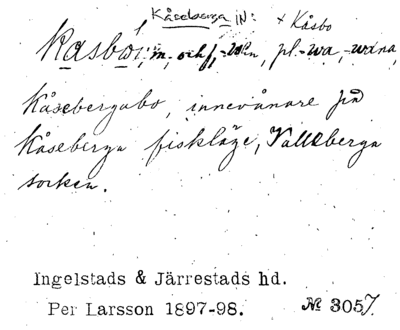 Kåseberga IN: × Kåsbo
Kasboi, m, och f, -wɘn, pl. -wa, -wɘna,
Kåsebergabo, innevånare på
Kåseberga fiskläge, Valleberga
socken.
Ingelstads & Järrestads hd.
Per Larsson 1897-98. № 3057.